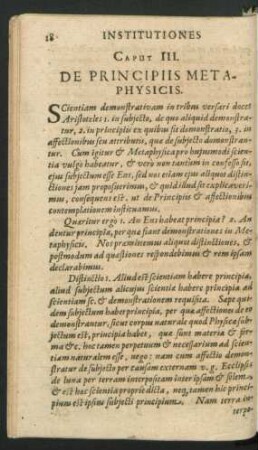 18 INSTITUTIONES
CAPUT III.
DE PRINCIPIIS META-
PHYSICIS.
SCientiam demonstrativam in tribus versari docet
Aristoteles 1. in subjecto, de quo aliquid demonstra-
tur, 2. in principiis ex quibus fit demonstratio, 3. in
affectionibus seu attributis, quæ de subjecto demonstran-
tur. Cum igitur & Metaphysica pro hujusmodi scien-
tia vulgò habeatur, & verò nun tantum in confesso sit,
ejus subjectum esse Ens, sed nos etiam ejus aliquas distin-
ctiones jam proposuerimus, & quid illud sit explicaveri-
mus, consequens est, ut de Principiis & affectionibus
contemplationem instituamus.
Quæritur ergò 1. An Ens habeat principia? 2. An
dentur principia, per quæ fiant demonstrationes in Me-
taphysicis. Nos præmittemus aliquas distinctiones, &
postmodum ad quæstiones respondebimus & rem ipsam
declarabimus.
Distinctio 1. Aliud est scientiam habere principia,
aliud subjectum alicujus scientiæ habere principia ad
scientiam sc. & demonstrationem requisita. Sæpe qui-
dem subjectum habet principia, per quæ affectiones de eo
demonstrantur, sicut corpus naturale quod Physicæ sub-
jectum est, principia habet, quæ sunt materia & for-
ma &c. hoc tamen perpetuum & necessarium ad scien-
tiam naturalem esse, nego: nam cum affectio demon-
stratur de subjecto per causam externam v. g. Ecclipsis
de luna per terram interpositam inter ipsam & solem,
& est hoc scientia propriè dicta, neq; tamen hic princi-
pium est ipsius subjecti principium. Nam terra in-
terpo-